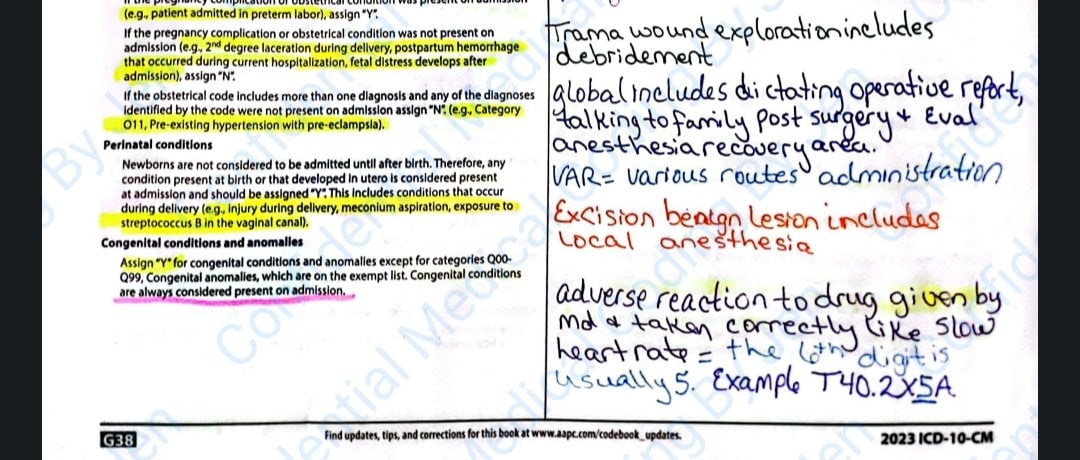 (e.g., patient admitted in preterm labor), assign "Y".
If the pregnancy complication or obstetrical condition was not present on
admission (e.g., 2nd degree laceration during delivery, postpartum hemorrhage
that occurred during current hospitalization, fetal distress develops after
admission), assign "N".
If the obstetrical code includes more than one diagnosis and any of the diagnoses
identified by the code were not present on admission assign "N". (e.g., Category
O11, Pre-existing hypertension with pre-eclampsia).
Perinatal conditions
Newborns are not considered to be admitted until after birth. Therefore, any
condition present at birth or that developed in utero is considered present
at admission and should be assigned "Y". This includes conditions that occur
during delivery (e.g., injury during delivery, meconium aspiration, exposure to
streptococcus B in the vaginal canal).
Congenital conditions and anomalies
Assign "Y" for congenital conditions and anomalies except for categories Q00-
Q99, Congenital anomalies, which are on the exempt list. Congenital conditions
are always considered present on admission.
Trama wound exploration includes
debridement
global includes dictating operative report,
talking to family post surgery + Eval
anesthesia recovery area.
VAR = various routes administration
Excision benign Lesion includes
Local anesthesia
adverse reaction to drug given by
Md & taken correctly like slow
heart rate = the 6th digit is
usually 5. Example T40.2X5A
G38
Find updates, tips, and corrections for this book at www.aapc.com/codebook_updates.
2023 ICD-10-CM